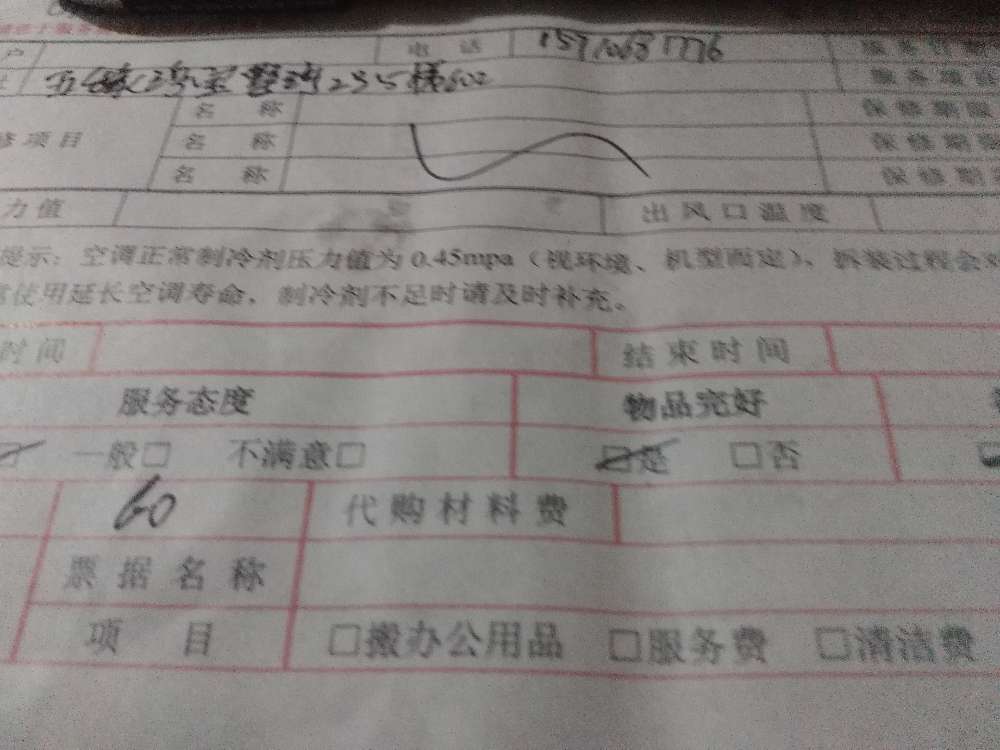 户 电 话
修项目 名 称 保修期限
名 称 保修期限
名 称 保修期
力值 出风口温度
提示：空调正常制冷剂压力值为0.45mpa（视环境、机型而定），拆装过程会对
使用延长空调寿命，制冷剂不足时请及时补充。
时间 结束时间
服务态度 物品完好
一般□ 不满意□ □是 □否
60 代购材料费
票据名称
项 目 □搬办公用品 □服务费 □清洁费